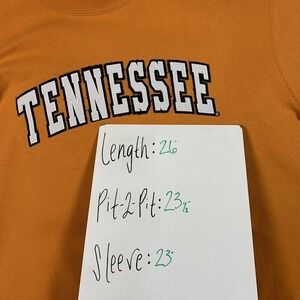 TENNESSEE
Length: 26"
Pit-2-Pit: 23½"
Sleeve: 23"